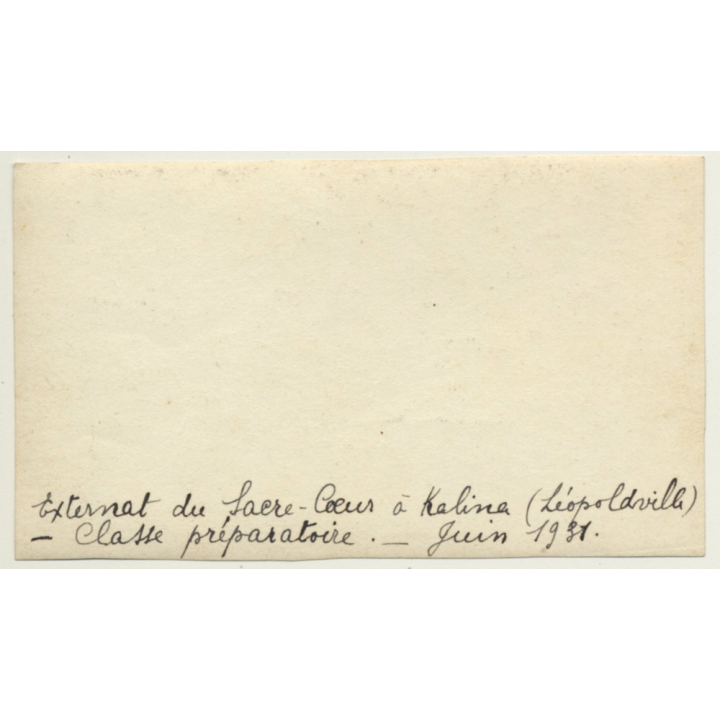 Externat du Sacre-Cœur à Kalina (Léopoldville)
— Classe préparatoire. — Juin 1931.